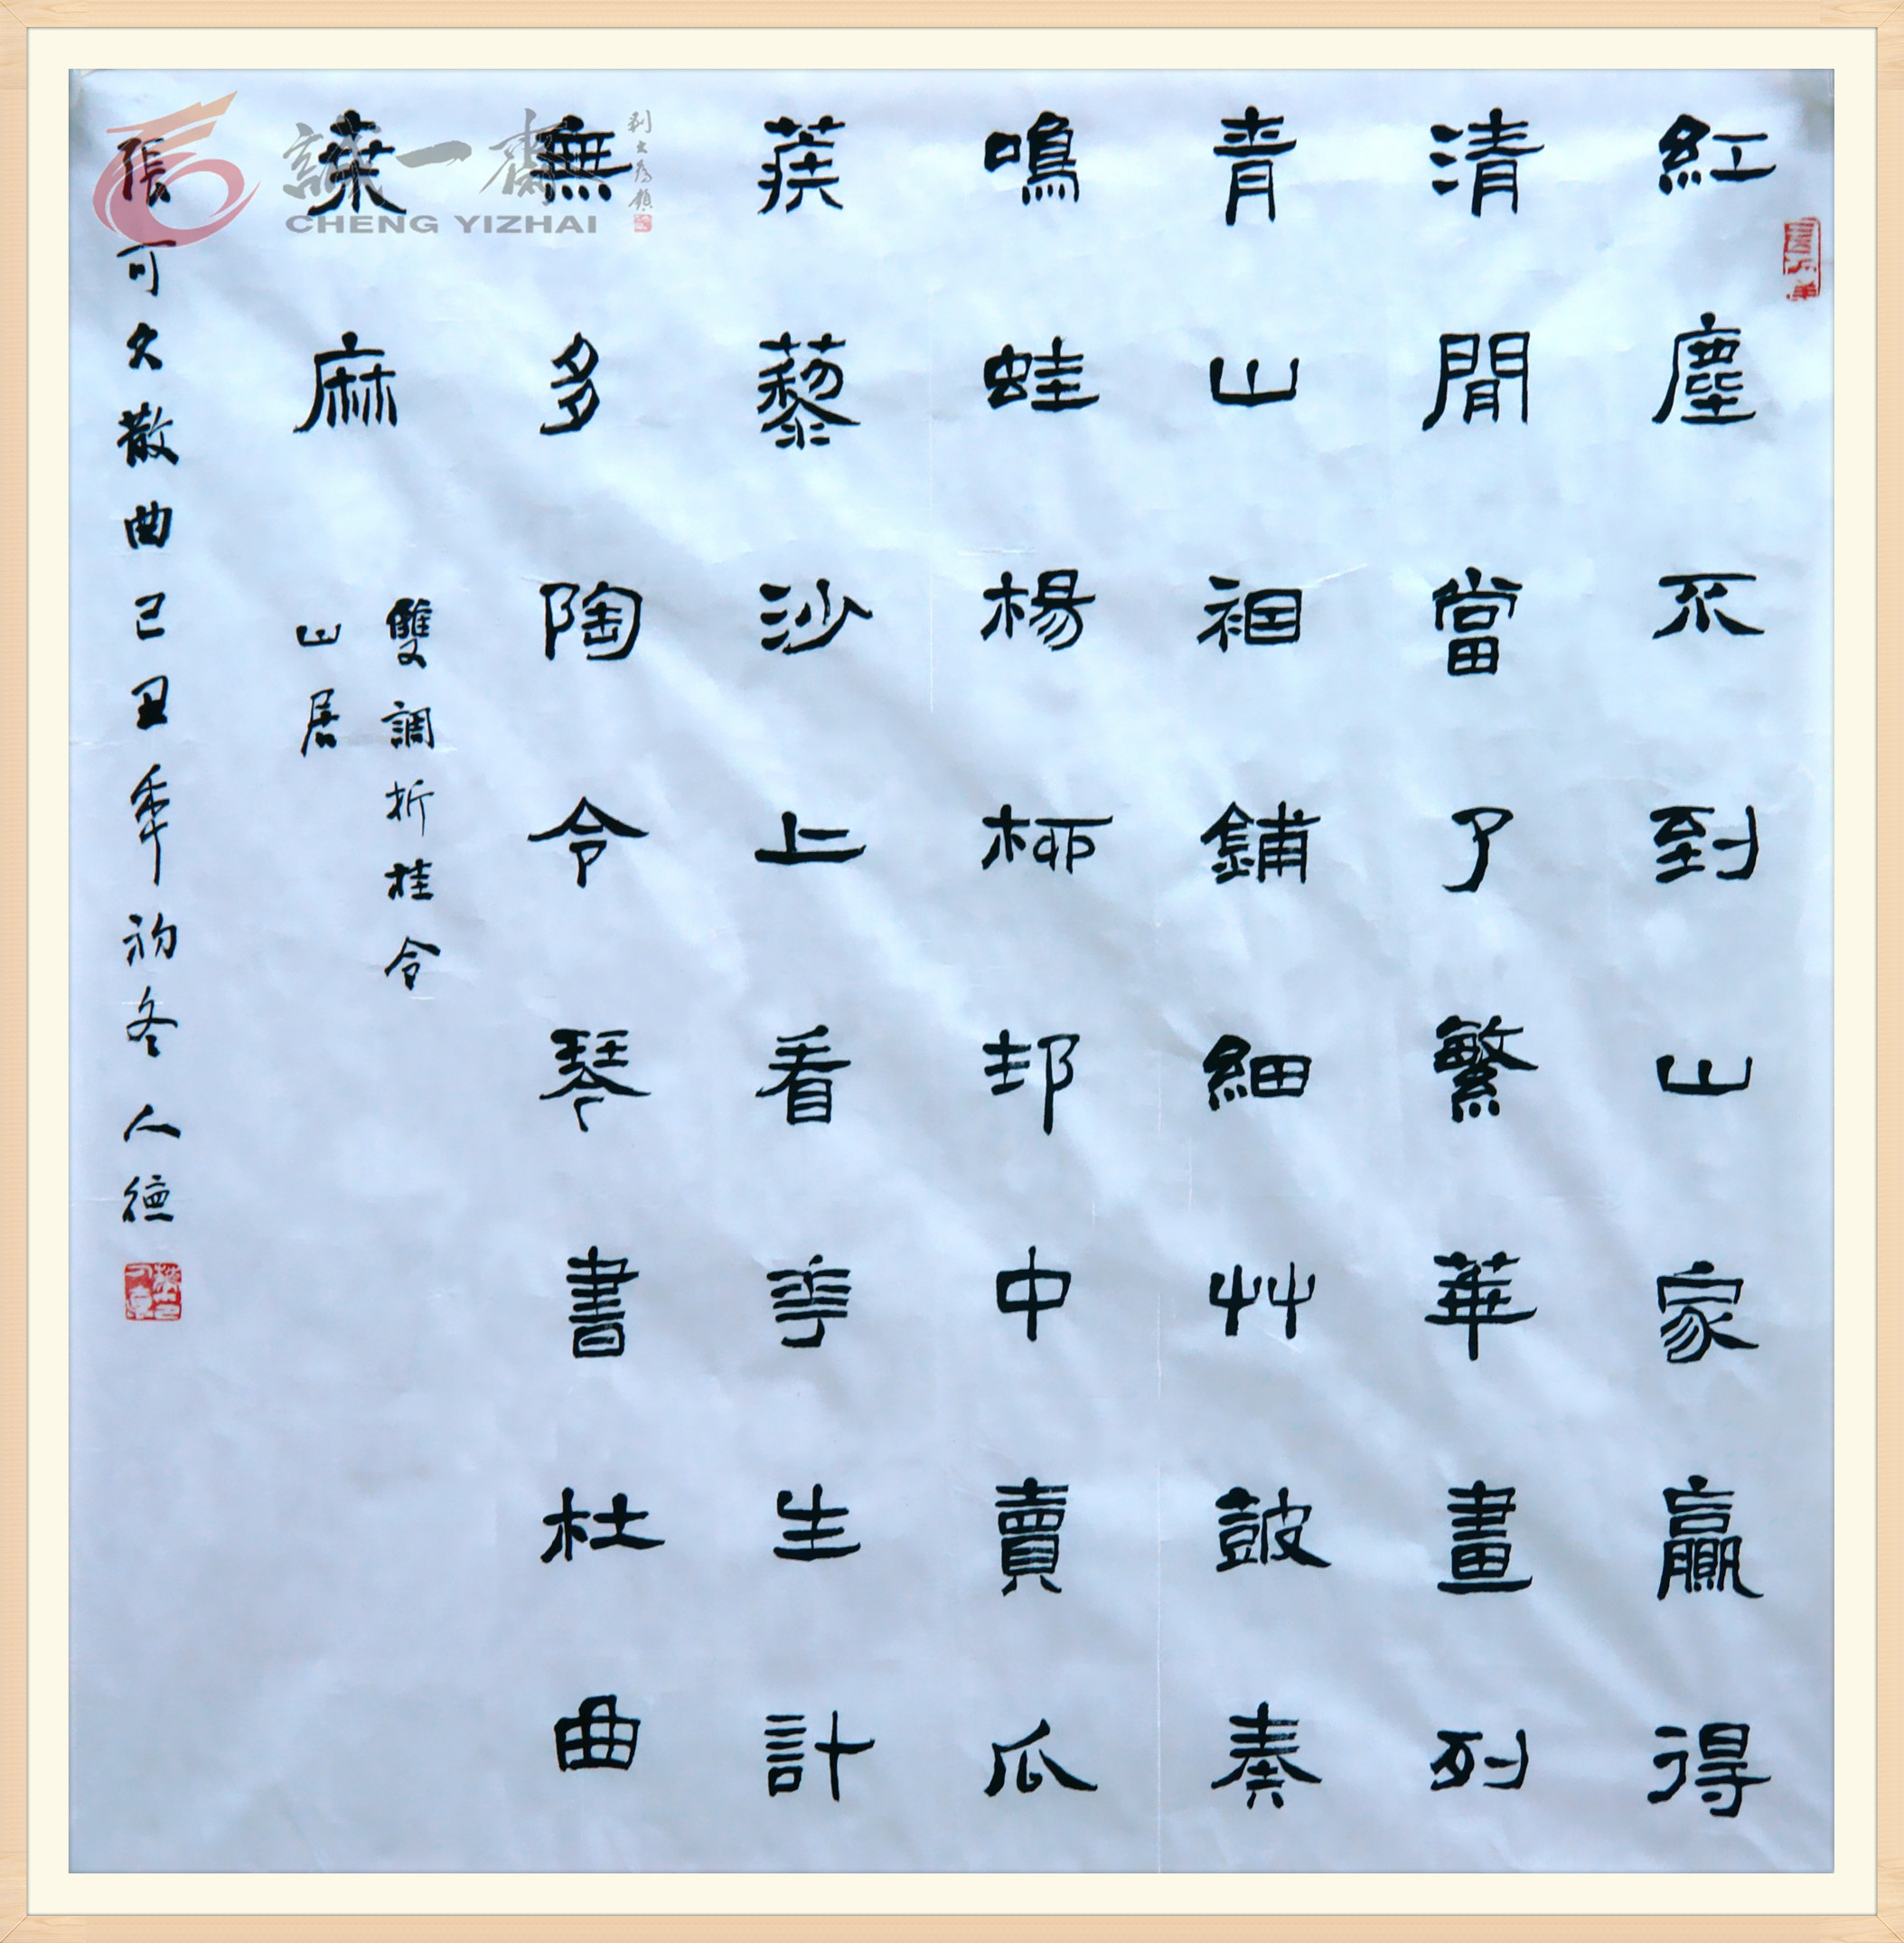 紅塵不到山家贏得
清閒當了繁華畫列
青山裀鋪細艸皷奏
鳴蛙楊柳邨中賣瓜
蒺藜沙上看華生計
無多陶令琴書杜曲
桑麻
雙調折桂令
山居
張可久散曲己丑年初冬 人德
誠一齋
CHENG YIZHAI